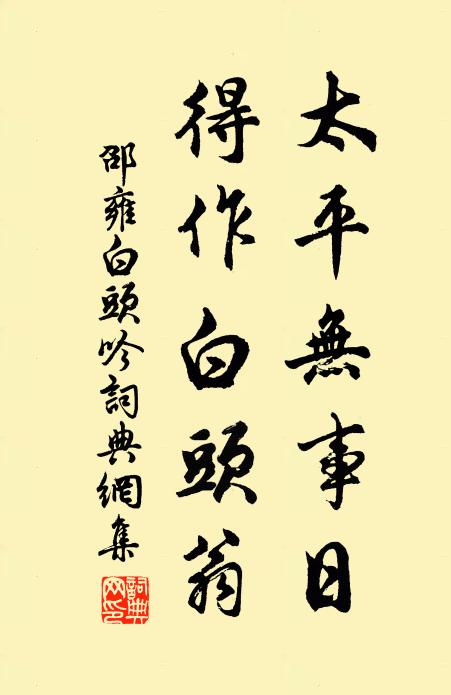 太平無事日
得作白頭翁
邵雍白頭吟詞典網集
詞典網印